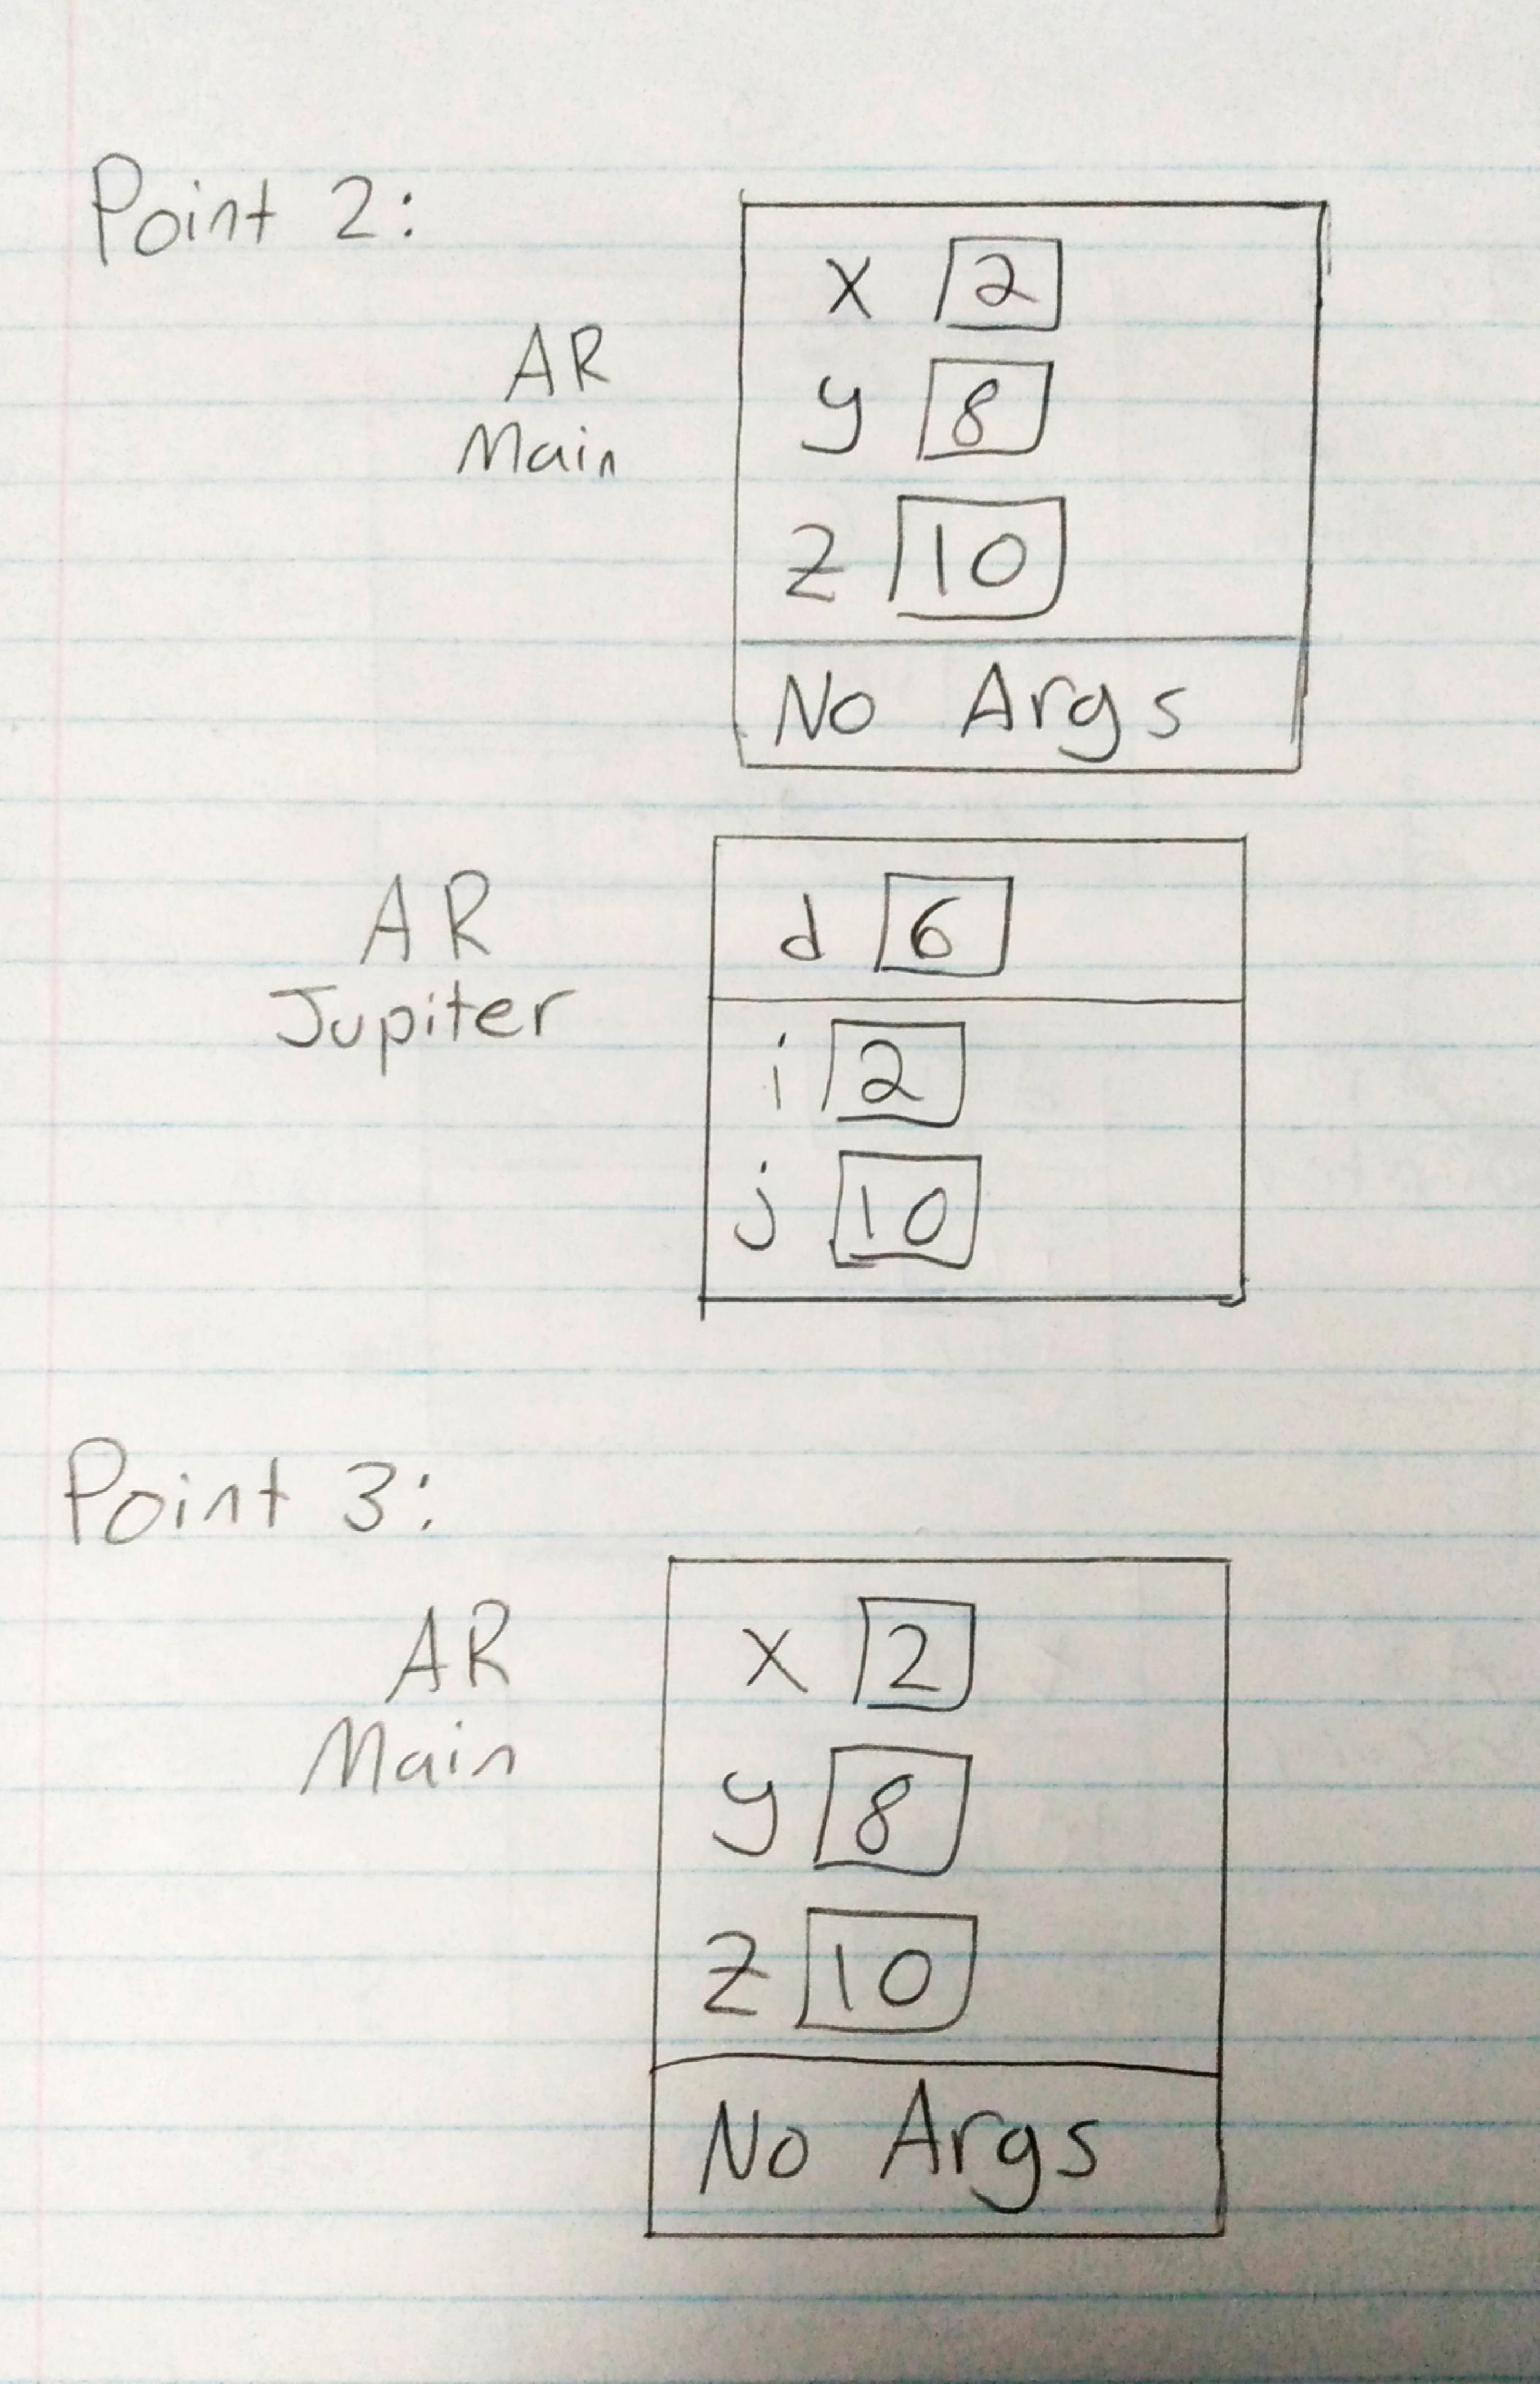 Point 2:
AR
Main
x 2
y 8
z 10
No Args
AR
Jupiter
d 6
i 2
j 10
Point 3:
AR
Main
x 2
y 8
z 10
No Args